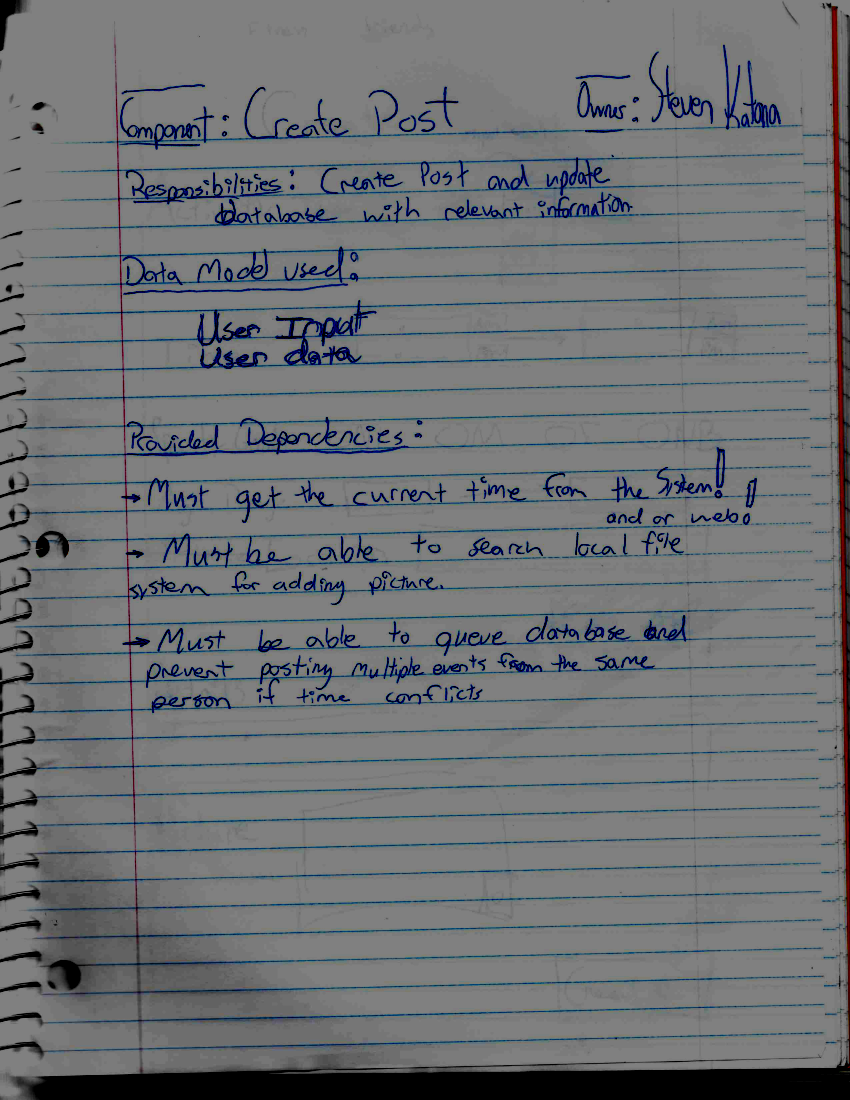 Component: Create Post Owner: Steven Katana
Responsibilities: Create Post and update
database with relevant information
Data Model used:
User Input
User data
Provided Dependencies:
→ Must get the current time from the System!
and or web!
→ Must be able to search local file
system for adding picture.
→ Must be able to queue database and
prevent posting multiple events from the same
person if time conflicts